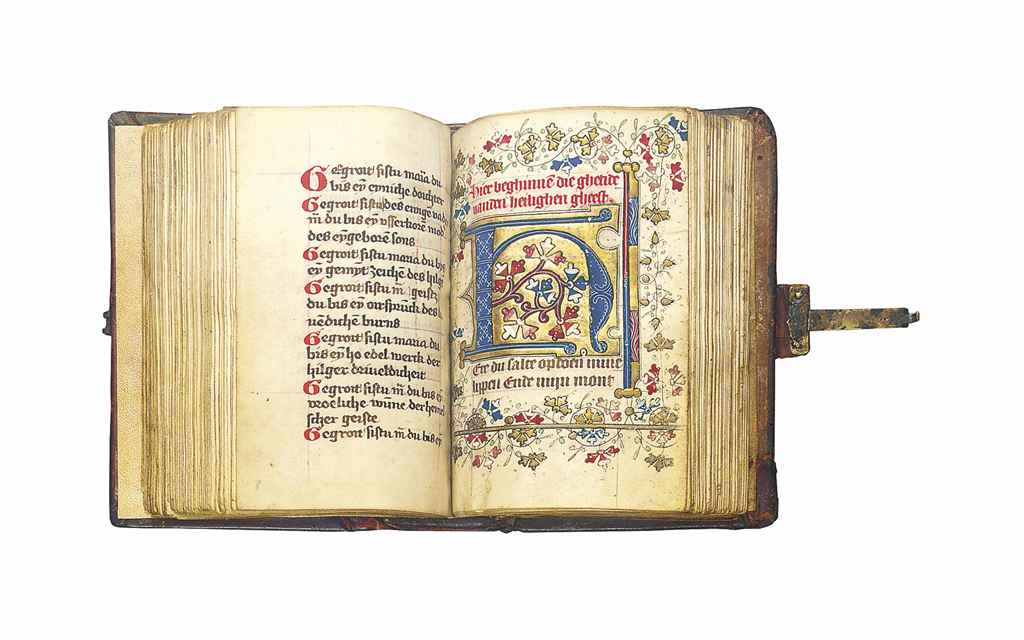 Gegroit sistu maria du
bis eyn eynliche dochter
Gegroit sistu des ewige
m̄ du bis eyn vsserkorē
des eyngeborē sons
Gegroit sistu maria du bys
eyn gemynt des hilge
Gegroit sistu m̄ geistz
du bis eyn des
burns
Gegroit sistu maria du
bis eyn ho edel werck der
hilger driueldicheit
Gegroit sistu m̄ du bis eyn
vroeliche wūne der hemel
scher geiste
Gegroit sistu m̄ du bis ey
Hier beghinnē die ghetide
vanden heilighen gheest.
H
Ere du salte opdoen mine
lippen Ende mijn mont